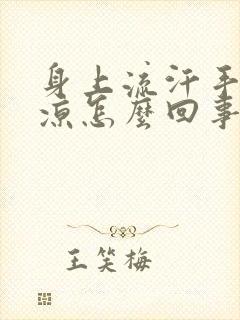 身上流汗手
凉怎麼回事
王笑梅